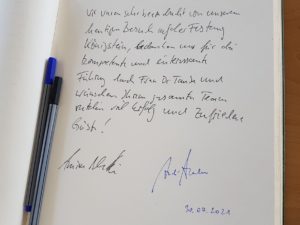 Wir waren sehr beeindruckt von unserem
heutigen Besuch auf der Festung
Königstein, bedanken uns für die
kompetente und interessante
Führung durch Frau Dr. und
wünschen Ihrem gesamten Team
viel Erfolg und Zufriedene
Gäste!
30.07.2021